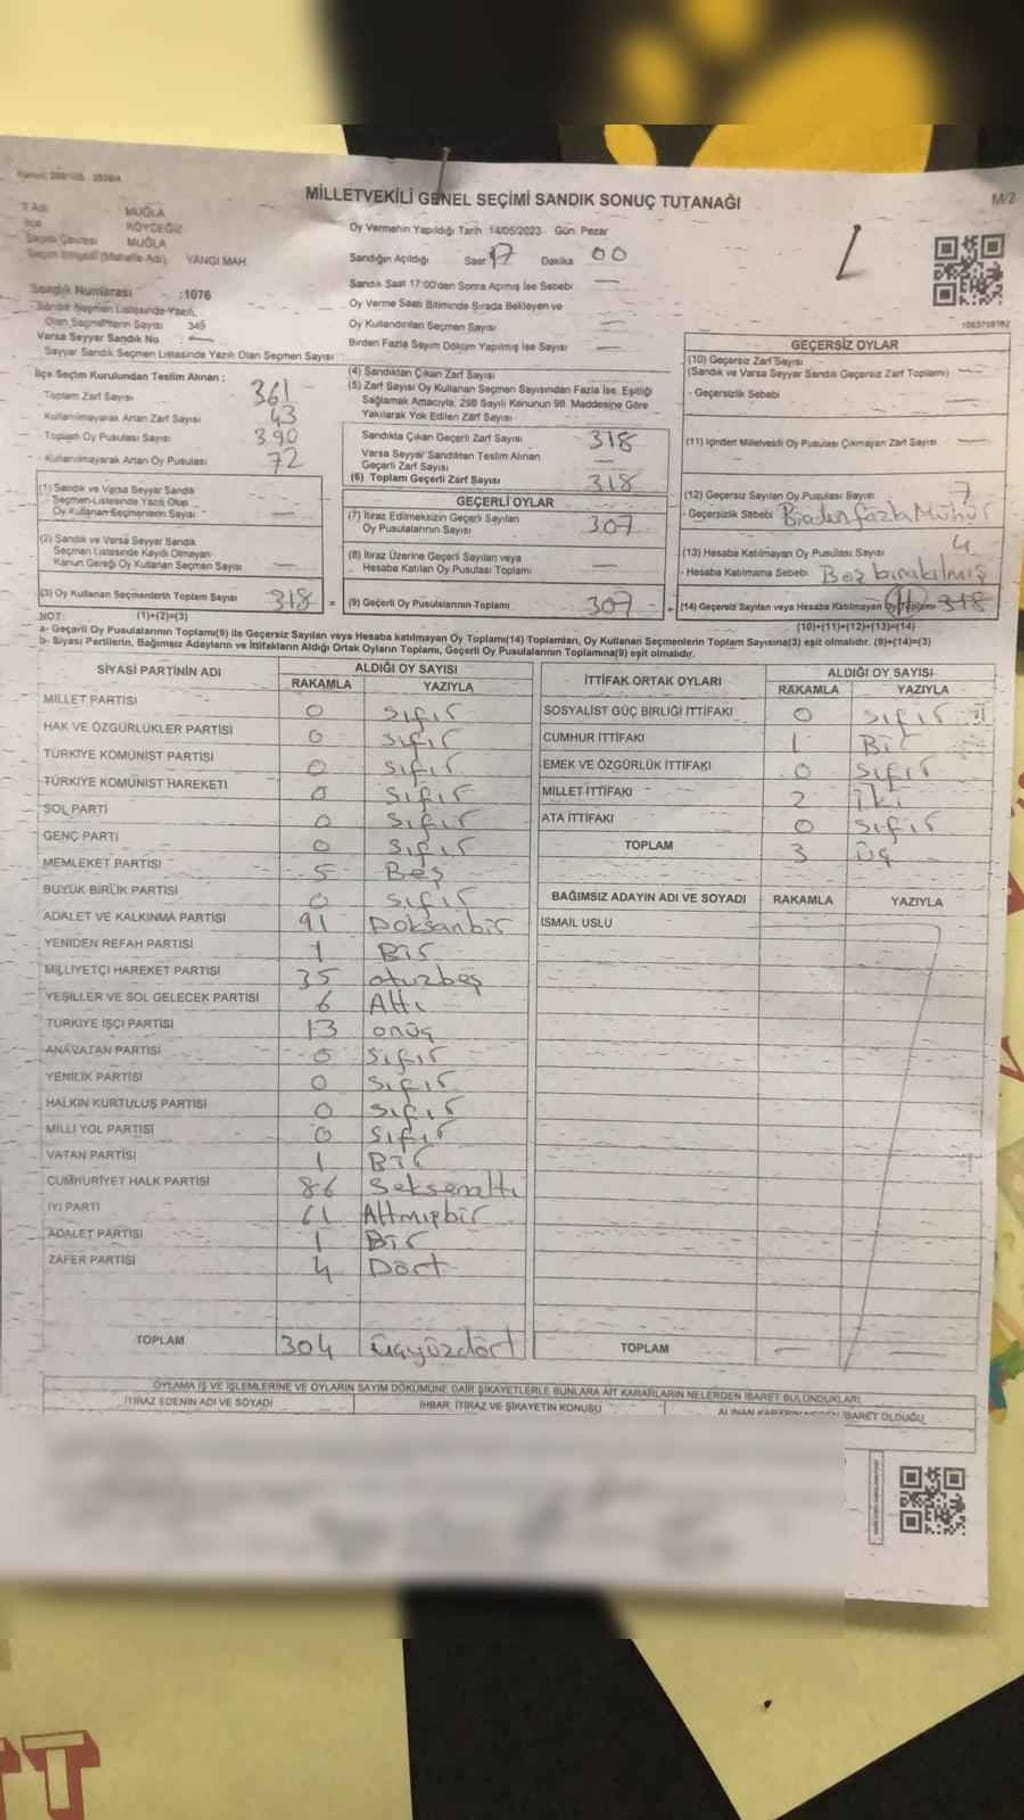 MİLLETVEKİLİ GENEL SEÇİMİ SANDIK SONUÇ TUTANAĞI
M/2
İl Adı MUĞLA
İlçe KÖYCEĞİZ
Seçim Çevresi MUĞLA
(Mahalle Adı) YANGI MAH.
Sandık Numarası :1076
Sandık Seçmen Listesinde Yazılı
Olan Seçmenlerin Sayısı 345
Varsa Seyyar Sandık No
Seyyar Sandık Seçmen Listesinde Yazılı Olan Seçmen Sayısı
İlçe Seçim Kurulundan Teslim Alınan :
Toplam Zarf Sayısı 361
Kullanılmayarak Artan Zarf Sayısı 43
Toplam Oy Pusulası Sayısı 390
Kullanılmayarak Artan Oy Pusulası 72
(1) Sandık ve Varsa Seyyar Sandık
Seçmen Listesinde Yazılı Olup
Oy Kullanan Seçmenlerin Sayısı
(2) Sandık ve Varsa Seyyar Sandık
Seçmen Listesinde Kaydı Olmayan
Kanun Gereği Oy Kullanan Seçmen Sayısı
(3) Oy Kullanan Seçmenlerin Toplam Sayısı 318
(1)+(2)=(3)
Oy Vermenin Yapıldığı Tarih :14/05/2023 Gün: Pazar
Sandığın Açıldığı Saat 17 Dakika 00
Sandık Saat 17:00'den Sonra Açılmış İse Sebebi
Oy Verme Saati Bitiminde Sırada Bekleyen ve
Oy Kullandırılan Seçmen Sayısı
Birden Fazla Sayım Döküm Yapılmış İse Sayısı
(4) Sandıktan Çıkan Zarf Sayısı
(5) Zarf Sayısı Oy Kullanan Seçmen Sayısından Fazla İse, Eşitliği
Sağlamak Amacıyla, 298 Sayılı Kanunun 98. Maddesine Göre
Yakılarak Yok Edilen Zarf Sayısı
Sandıkta Çıkan Geçerli Zarf Sayısı 318
Varsa Seyyar Sandıktan Teslim Alınan
Geçerli Zarf Sayısı
(6) Toplam Geçerli Zarf Sayısı 318
GEÇERLİ OYLAR
(7) İtiraz Edilmeksizin Geçerli Sayılan
Oy Pusulalarının Sayısı 307
(8) İtiraz Üzerine Geçerli Sayılan veya
Hesaba Katılan Oy Pusulası Toplamı
= (9) Geçerli Oy Pusulalarının Toplamı 307
GEÇERSİZ OYLAR
(10) Geçersiz Zarf Sayısı
(Sandık ve Varsa Seyyar Sandık Geçersiz Zarf Toplamı)
- Geçersizlik Sebebi
(11) İçinden Milletvekili Oy Pusulası Çıkmayan Zarf Sayısı
(12) Geçersiz Sayılan Oy Pusulası Sayısı 7
- Geçersizlik Sebebi Birden fazla Mühür
(13) Hesaba Katılmayan Oy Pusulası Sayısı 4
- Hesaba Katılmama Sebebi Boş bırakılmış
+ (14) Geçersiz Sayılan veya Hesaba Katılmayan Oy Toplamı 11 318
(10)+(11)+(12)+(13)=(14)
NOT:
a- Geçerli Oy Pusulalarının Toplamı(9) ile Geçersiz Sayılan veya Hesaba katılmayan Oy Toplamı(14) Toplamları, Oy Kullanan Seçmenlerin Toplam Sayısına(3) eşit olmalıdır. (9)+(14)=(3)
b- Siyasi Partilerin, Bağımsız Adayların ve İttifakların Aldığı Ortak Oyların Toplamı, Geçerli Oy Pusulalarının Toplamına(9) eşit olmalıdır.
SİYASİ PARTİNİN ADI ALDIĞI OY SAYISI
RAKAMLA YAZIYLA
MİLLET PARTİSİ 0 sıfır
HAK VE ÖZGÜRLÜKLER PARTİSİ 0 sıfır
TÜRKİYE KOMÜNİST PARTİSİ 0 sıfır
TÜRKİYE KOMÜNİST HAREKETİ 0 sıfır
SOL PARTİ 0 sıfır
GENÇ PARTİ 0 sıfır
MEMLEKET PARTİSİ 5 Beş
BÜYÜK BİRLİK PARTİSİ 0 sıfır
ADALET VE KALKINMA PARTİSİ 91 Doksanbir
YENİDEN REFAH PARTİSİ 1 Bir
MİLLİYETÇİ HAREKET PARTİSİ 35 otuzbeş
YEŞİLLER VE SOL GELECEK PARTİSİ 6 Altı
TÜRKİYE İŞÇİ PARTİSİ 13 onüç
ANAVATAN PARTİSİ 0 sıfır
YENİLİK PARTİSİ 0 sıfır
HALKIN KURTULUŞ PARTİSİ 0 sıfır
MİLLİ YOL PARTİSİ 0 sıfır
VATAN PARTİSİ 1 Bir
CUMHURİYET HALK PARTİSİ 86 Seksenaltı
İYİ PARTİ 61 Altmışbir
ADALET PARTİSİ 1 Bir
ZAFER PARTİSİ 4 Dört
TOPLAM 304 üçyüzdört
İTTİFAK ORTAK OYLARI ALDIĞI OY SAYISI
RAKAMLA YAZIYLA
SOSYALİST GÜÇ BİRLİĞİ İTTİFAKI 0 sıfır
CUMHUR İTTİFAKI 1 Bir
EMEK VE ÖZGÜRLÜK İTTİFAKI 0 sıfır
MİLLET İTTİFAKI 2 İki
ATA İTTİFAKI 0 sıfır
TOPLAM 3 üç
BAĞIMSIZ ADAYIN ADI VE SOYADI RAKAMLA YAZIYLA
İSMAİL USLU
TOPLAM
OYLAMA İŞ VE İŞLEMLERİNE VE OYLARIN SAYIM DÖKÜMÜNE DAİR ŞİKAYETLERLE BUNLARA AİT KARARLARIN NELERDEN İBARET BULUNDUKLARI
İTİRAZ EDENİN ADI VE SOYADI İHBAR, İTİRAZ VE ŞİKAYETİN KONUSU